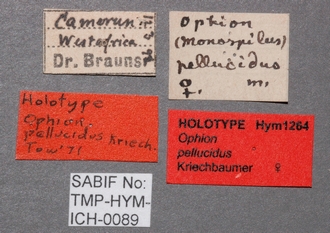 Camerun
Westafrica
Dr. Brauns
Ophion
(Monospilus)
pellucidus
♀. m.
Holotype
Ophion
pellucidus Kriech.
Tow '71
HOLOTYPE Hym1264
Ophion
pellucidus
Kriechbaumer ♀
SABIF No:
TMP-HYM-
ICH-0089